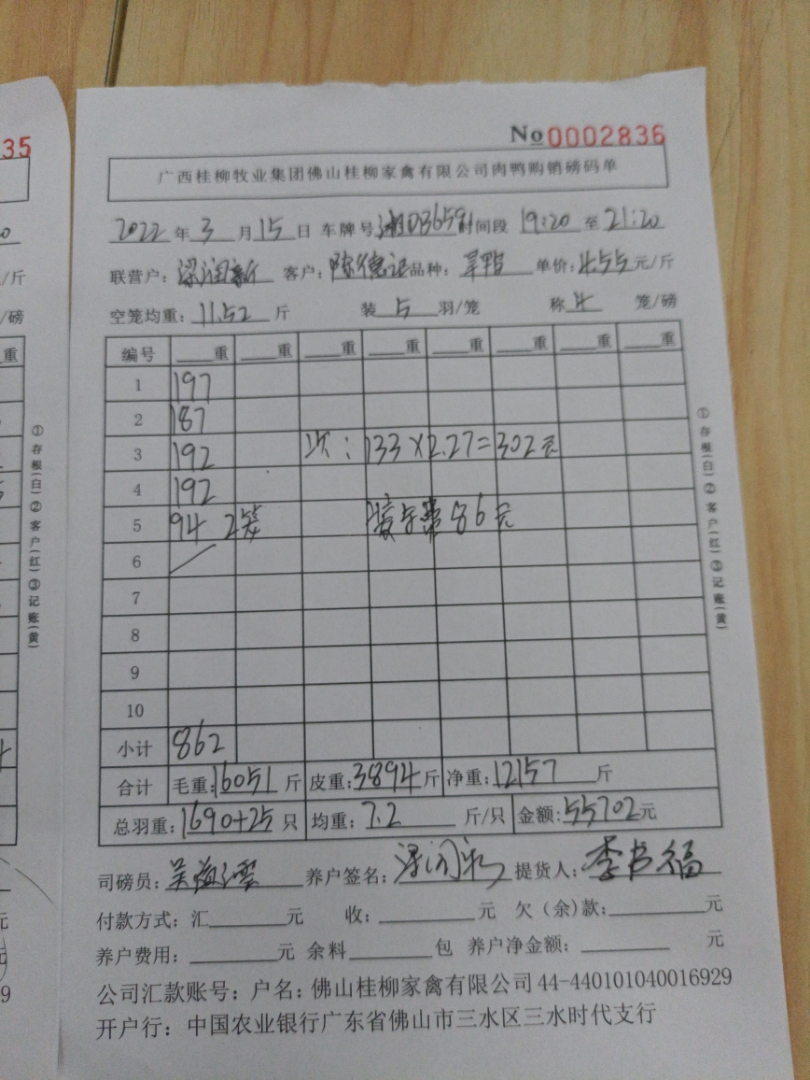 35
No 0002836
广西桂柳牧业集团佛山桂柳家禽有限公司肉鸭购销磅码单
2022 年 3 月 15 日 车牌号 湘DB6591 时间段 19:20 至 21:20
联营户: 梁润新 客户: 陈德记 品种: 旱鸭 单价: 4.55 元/斤
空笼均重: 11.52 斤 装 5 羽/笼 称 4 笼/磅
编号 重 重 重 重 重 重 重 重
1 197
2 187
3 192 次: 133×2.27=302元
4 192
5 94 2笼 装车费86元
6
7
8
9
10
小计 862
合计 毛重: 16051 斤 皮重: 3894 斤 净重: 12157 斤
总羽重: 1690+25 只 均重: 7.2 斤/只 金额: 55702 元
司磅员: 养户签名: 提货人: 李书福
付款方式: 汇 元 收: 元 欠(余)款: 元
养户费用: 元 余料 包 养户净金额: 元
公司汇款账号: 户名: 佛山桂柳家禽有限公司 44-440101040016929
开户行: 中国农业银行广东省佛山市三水区三水时代支行
①存根(白)②客户(红)③记账(黄)
①存根(白)②客户(红)③记账(黄)